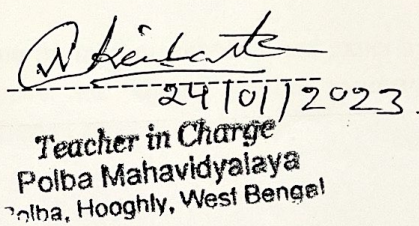 24/01/2023
Teacher in Charge
Polba Mahavidyalaya
Polba, Hooghly, West Bengal